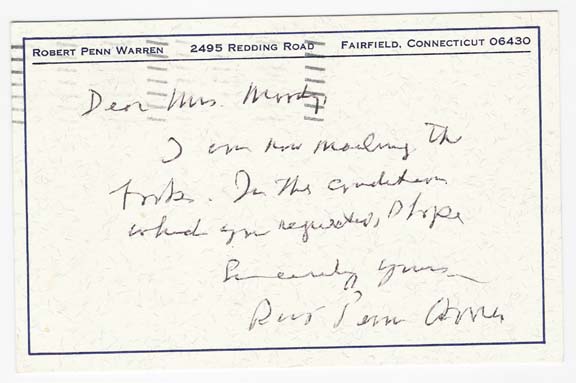 ROBERT PENN WARREN 2495 REDDING ROAD FAIRFIELD, CONNECTICUT 06430
Dear Mrs. Moody,
I am now mailing the
books. In the condition
which you requested, I hope
Sincerely yours
Robt Penn Warren